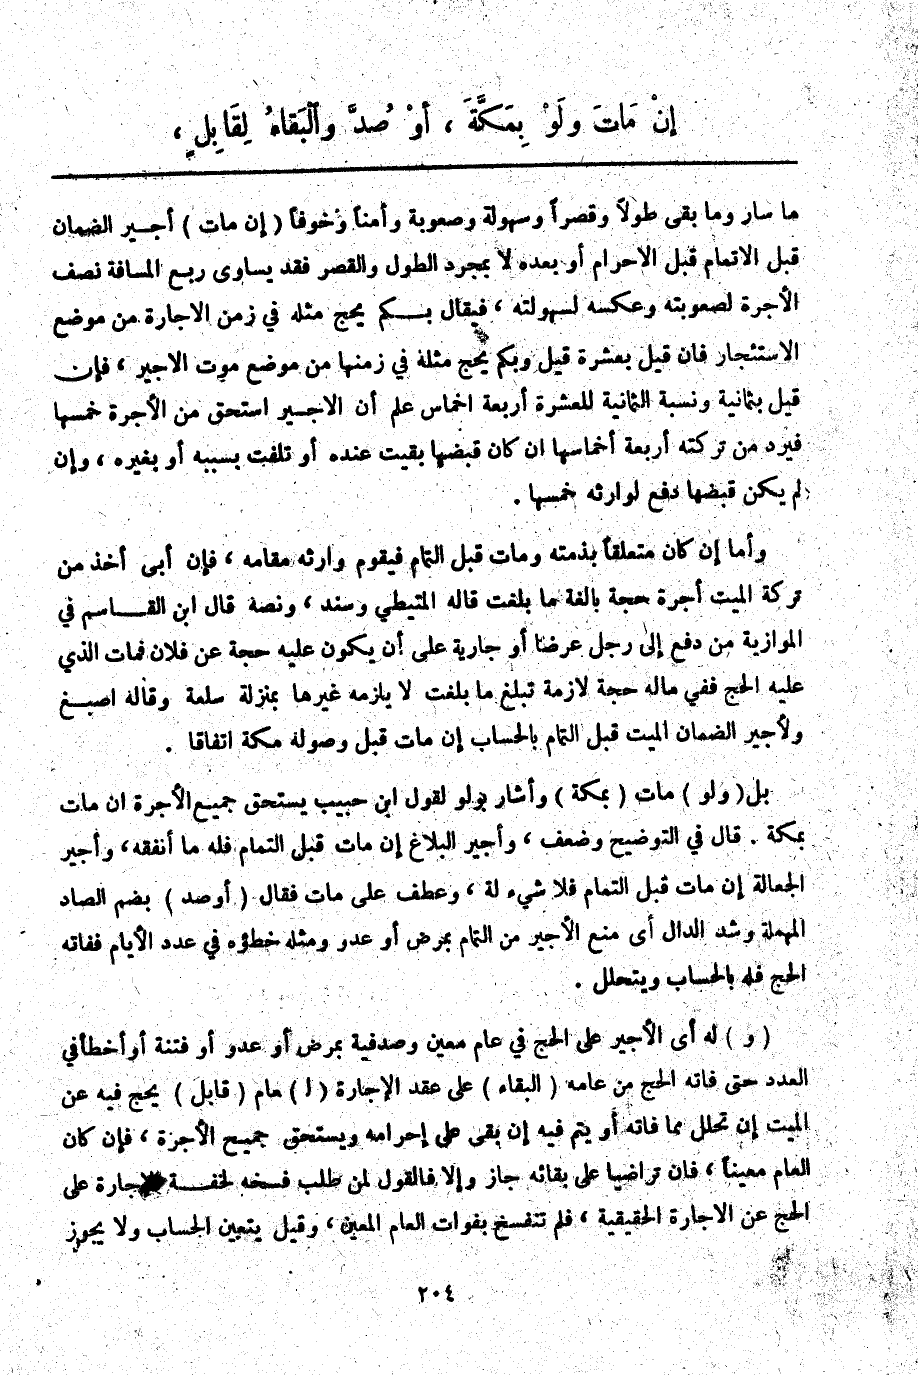 إنْ مَاتَ ولَوْ بِمَكَّةَ ، أوْ صُدَّ وٱلْبَقاءُ لِقَابِلٍ ،
ما سار وما بقى طولاً وقصراً وسهولة وصعوبة وأمناً وخوفاً ( إن مات ) أجـير الضمان
قبل الاتمام قبل الاحرام أو بعده لا بمجرد الطول والقصر فقد يساوى ربع المسافة نصف
الأجرة لصعوبته وعكسه لسهولته ، فيقال بـكم يحج مثله في زمن الاجارة من موضع
الاستئجار فان قيل بعشرة قيل وبكم يحج مثله في زمنها من موضع موت الاجير ، فإن
قيل بثمانية ونسبة الثمانية للعشرة أربعة اخماس علم أن الاجـير استحق من الأجرة خمسها
فيرد من تركته أربعة أخماسها ان كان قبضها بقيت عنده أو تلفت بسببه أو بغيره ، وإن
لم يكن قبضها دفع لوارثه خمسها .
وأما إن كان متعلقاً بذمته ومات قبل التمام فيقوم وارثه مقامه ، فإن أبى أخذ من
تركة الميت أجرة حجة بالغة ما بلغت قاله المتيطي وسند ، ونصه قال ابن القـاسم في
الموازية من دفع إلى رجل عرضا أو جارية على أن يكون عليه حجة عن فلان فمات الذي
عليه الحج ففي ماله حجة لازمة تبلغ ما بلغت لا يلزمه غيرها بمنزلة سلعة وقاله اصبـغ
ولأجير الضمان الميت قبل التمام بالحساب إن مات قبل وصوله مكة اتفاقا .
بل ( ولو ) مات ( بمكة ) وأشار بولو لقول ابن حبيب يستحق جميع الأجرة ان مات
بمكة . قال في التوضيح وضعف ، وأجير البلاغ إن مات قبل التمام فله ما أنفقه ، وأجير
الجعالة إن مات قبل التمام فلا شيء له ، وعطف على مات فقال ( أو صد ) بضم الصاد
المهملة وشد الدال أى منع الأجير من التمام بمرض أو عدو ومثله خطؤه في عدد الأيام ففاته
الحج فله بالحساب ويتحلل .
( و ) له أى الأجير على الحج في عام معين وصدفية بمرض أو عدو أو فتنة أو أخطأ في
العدد حتى فاته الحج من عامه ( البقاء ) على عقد الإجارة ( لـ ) عام ( قابل ) يحج فيه عن
الميت إن تحلل مما فاته أو يتم فيه إن بقى على إحرامه ويستحق جميع الأجرة ، فإن كان
العام معيناً ، فان تراضيا على بقائه جاز وإلا فالقول لمن طلب فسخه لخفـة جارة على
الحج عن الاجارة الحقيقية ، فلم تنفسخ بفوات العام المعين ، وقيل يتعين الحساب ولا يجوز
٢٠٤